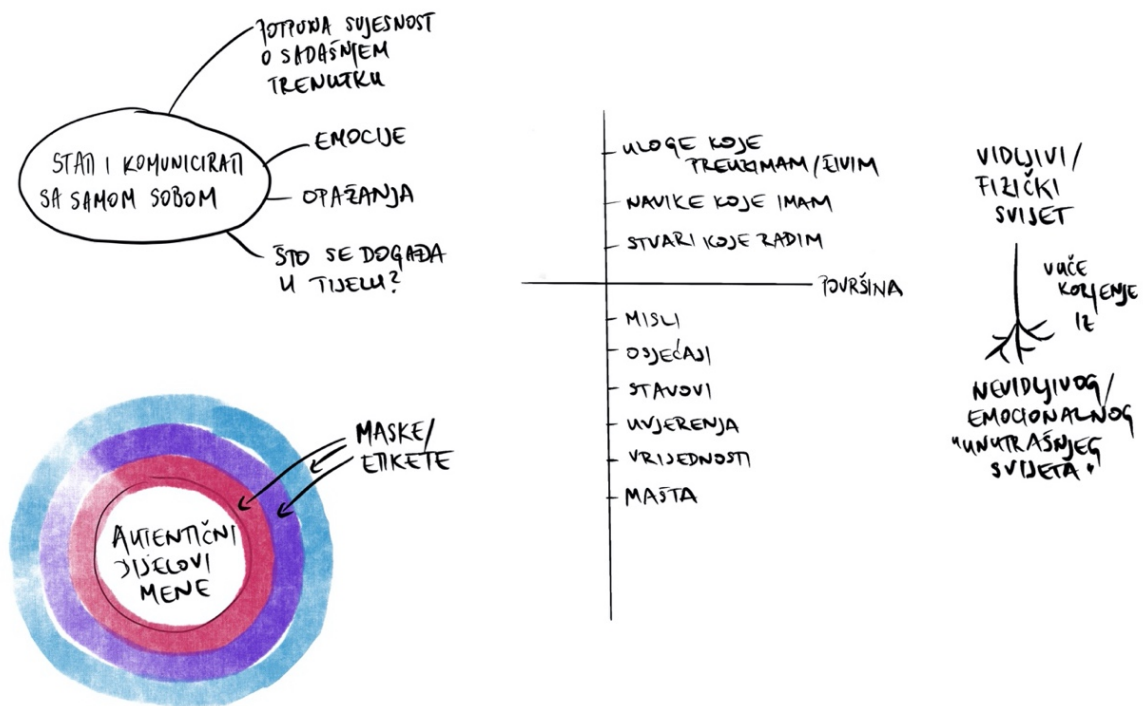 POTPUNA SVJESNOST
O SADAŠNJEM
TRENUTKU
STATI I KOMUNICIRATI
SA SAMOM SOBOM
EMOCIJE
OPAŽANJA
ŠTO SE DOGAĐA
U TIJELU?
MASKE/
ETIKETE
AUTENTIČNI
DIJELOVI
MENE
ULOGE KOJE
PREUZIMAM/ŽIVIM
NAVIKE KOJE IMAM
STVARI KOJE RADIM
POVRŠINA
MISLI
OSJEĆAJI
STAVOVI
UVJERENJA
VRIJEDNOSTI
MAŠTA
VIDLJIVI/
FIZIČKI
SVIJET
VUČE
KORJENJE
IZ
NEVIDLJIVOG/
EMOCIONALNOG
"UNUTRAŠNJEG
SVIJETA"